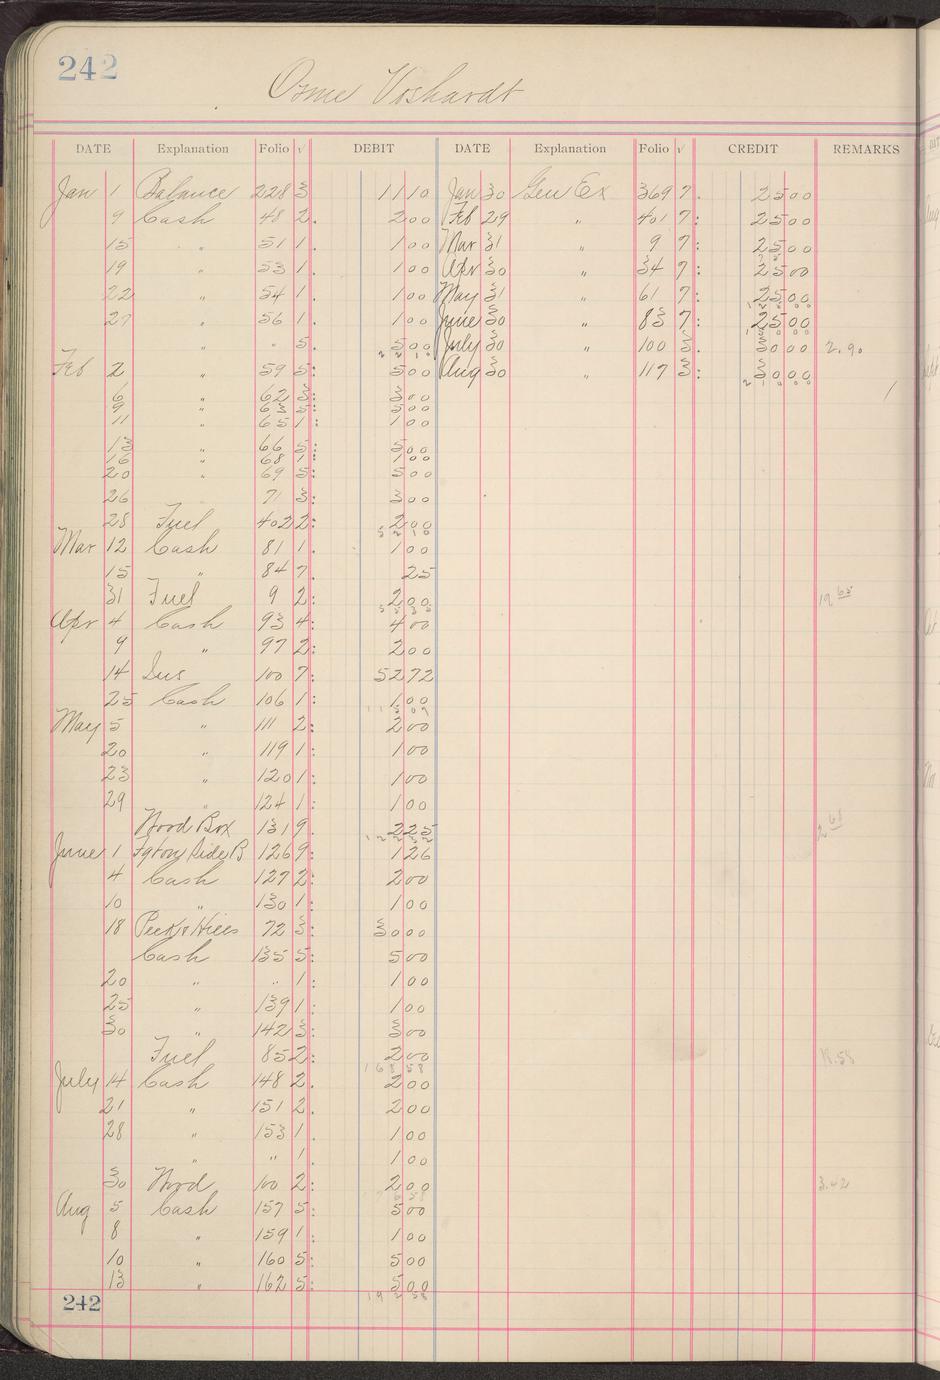 242
Osme Voshardt
DATE Explanation Folio √ DEBIT DATE Explanation Folio √ CREDIT REMARKS
Jan 1 Balance 228 3 11 10 Jan 30 Gen Ex 369 7. 25 00
9 Cash 48 2. 2 00 Feb 29 " 401 7: 25 00
15 " 51 1. 1 00 Mar 31 " 9 7: 25 00
19 " 53 1. 1 00 Apr 30 " 34 7: 25 00
22 " 54 1. 1 00 May 31 " 61 7: 25 00
27 " 56 1. 1 00 June 30 " 83 7: 25 00
" " 5. 5 00 July 30 " 100 3. 30 00 2.90
22 10
Feb 2 " 59 5: 5 00 Aug 30 " 117 3: 30 00
210 00
6 " 62 3: 3 00
9 " 63 5: 5 00
11 " 65 1: 1 00
13 " 66 5: 5 00
16 " 68 1: 1 00
20 " 69 5: 5 00
26 71 3: 3 00
28 Fuel 402 2: 2 00
52 10
Mar 12 Cash 81 1. 1 00
15 " 84 7. 25
31 Fuel 9 2: 2 00 19 65
55 35
Apr 4 Cash 93 4: 4 00
9 " 97 2: 2 00
14 Sus 100 7: 52 72
25 Cash 106 1: 1 00
May 5 " 111 2: 2 00
20 " 119 1: 1 00
23 " 120 1: 1 00
29 " 124 1: 1 00
Wood Box 131 9. 2 25
122 32
June 1 Side B 126 9: 1 26
4 Cash 127 2: 2 00
10 " 130 1: 1 00
18 Peck & Hills 72 3: 30 00
Cash 135 5: 5 00
20 " " 1: 1 00
25 " 139 1: 1 00
30 " 142 3: 3 00
Fuel 85 2: 2 00 18.58
168 58
July 14 Cash 148 2. 2 00
21 " 151 2. 2 00
28 " 153 1. 1 00
" " 1. 1 00
30 Wood 100 2: 2 00 3.42
176 58
Aug 5 Cash 157 5: 5 00
8 " 159 1: 1 00
10 " 160 5: 5 00
13 " 162 5: 5 00
192 58
242